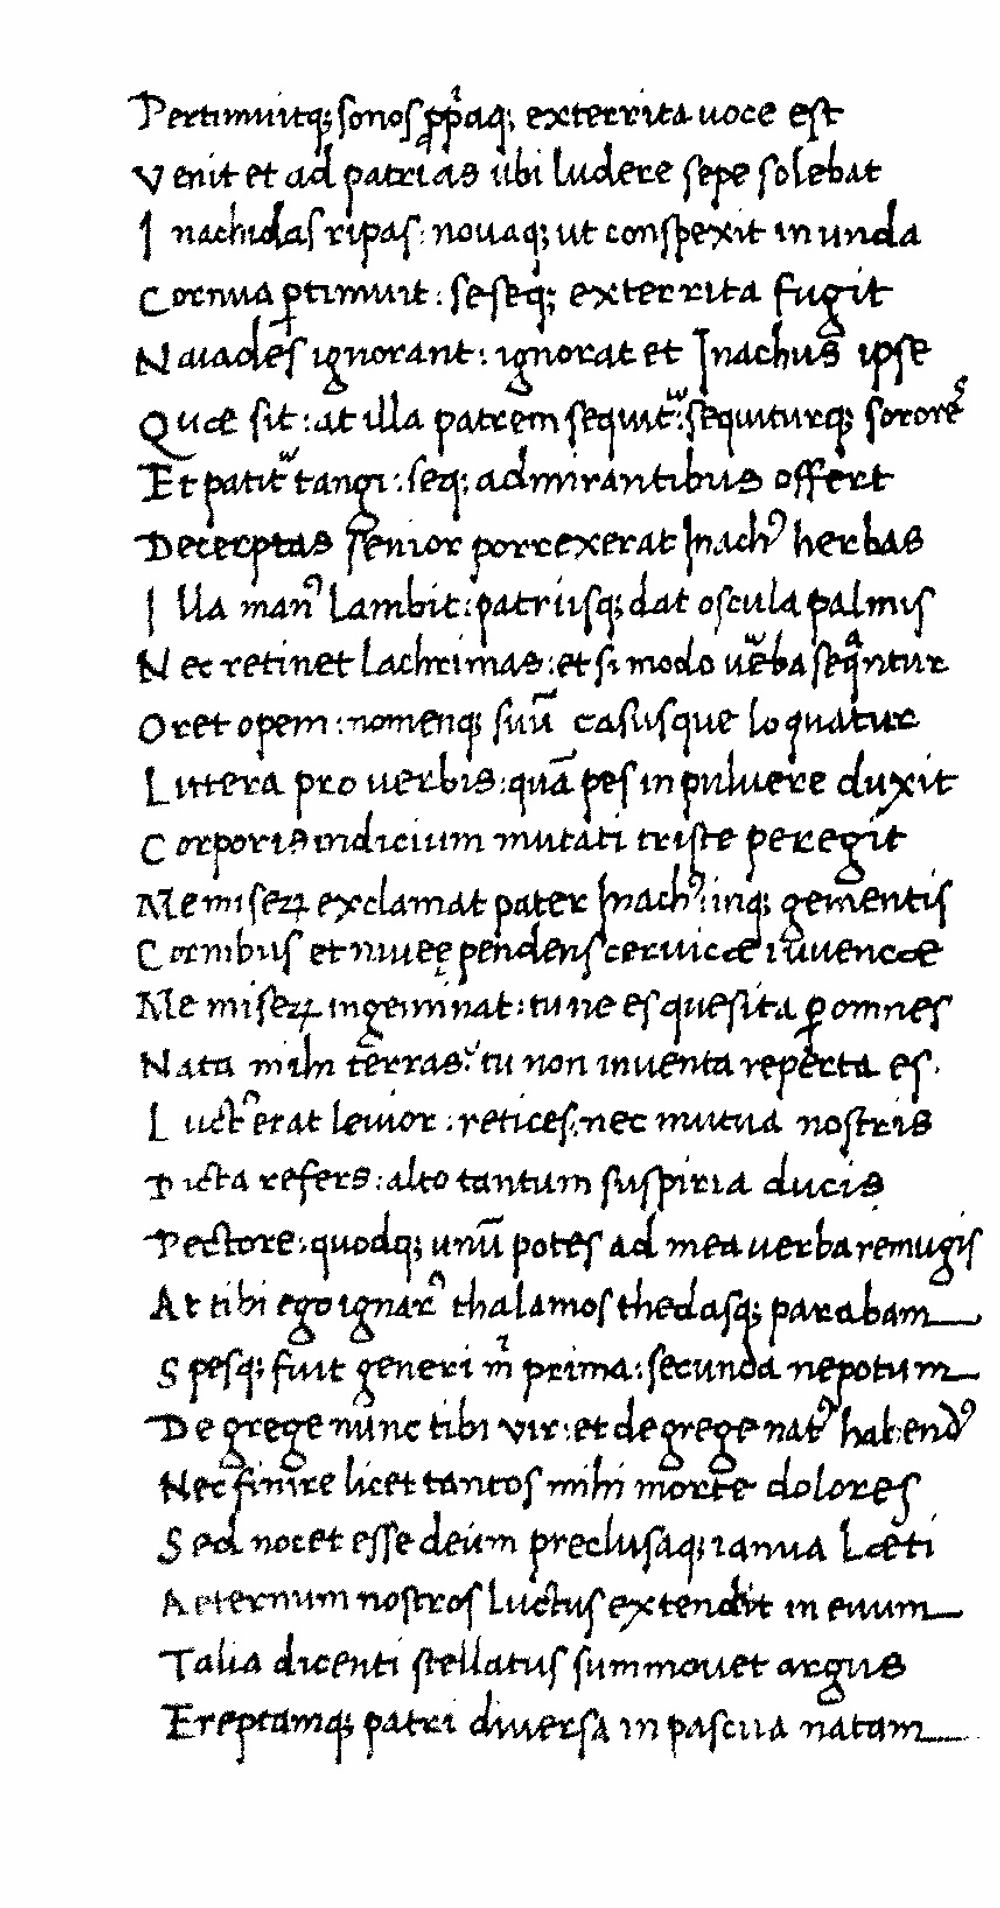 Pertimuitq; sonos ꝓpͥaq; exterrita uoce est
Venit et ad patrias ubi ludere sepe solebat
Inachidas ripas: nouaq; ut conspexit in unda
Cornua ꝑtimuit: seseq; exterrita fugit
Naiades ignorant: ignorat et Inachus ipse
Quae sit: at illa patrem sequit᷑: sequiturq; sororeˢ
Et patit᷑ tangi: seq; admirantibus offert
Decerptas senior porrexerat Inachꝰ herbas
Illa manꝰ lambit: patriisq; dat oscula palmis
Nec retinet lachrimas: et si modo ueba seqᵃntur
Oret opem: nomenq; suū casusque loquatur
Littera pro uerbis: quā pes in puluere duxit
Corporis indicium mutati triste peregit
Me miseꝝ exclamat pater Inachꝰ: inq; gementis
Cornibus et niueę pendens ceruicae iuuencae
Me miseꝝ ingeminat: tu ne es quesita ꝑ omnes
Nata mihi terras? tu non inuenta reperta es.
Luctꝰ erat leuior: retices: nec mutua nostris
Dicta refers: alto tantum suspiria ducis
Pectore: quodq; unū potes ad mea uerba remugis
At tibi ego ignarꝰ thalamos thedasq; parabam
Spesq; fuit generi mͥ prima: secunda nepotum
De grege nunc tibi vir: et de grege natꝰ habendꝰ
Nec finire licet tantos mihi morte dolores
Sed nocet esse deum preclusaq; ianua Laeti
Aeternum nostros luctus extendit in euum
Talia dicenti stellatus summouet argus
Ereptamq; patri diuersa in pascua natam